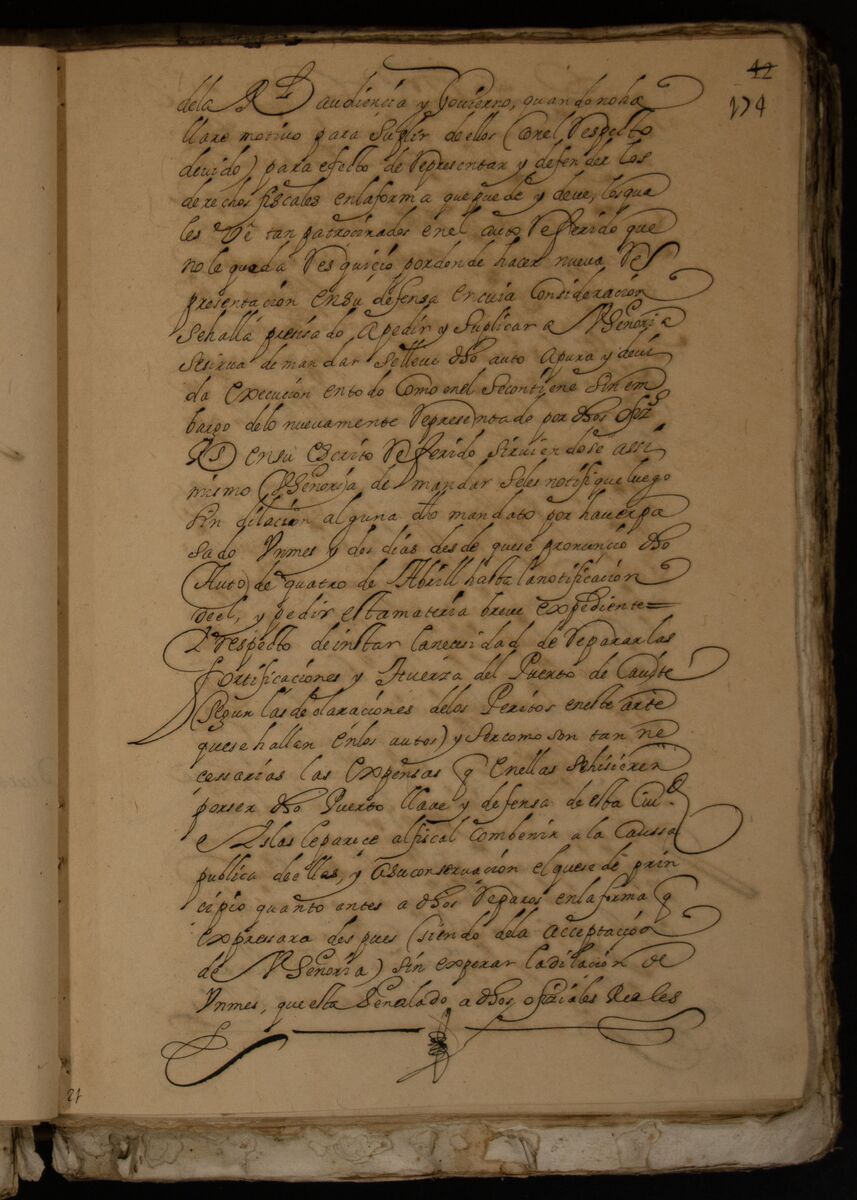 42
174
dela Rl audiencia y Govierno, quando noha
llare motivo para suplir deellos (conel Respecto
devido) para efecto de Representar y defender los
derechos fiscales enlaforma quepuede y deve, losqua
les vè tan patrocinados enel auto Referido que
nole queda Resquicio pordonde hacer nueva Re
presentación ensu defensa encuia Consideración
sehalla precisado apedir y suplicar a VSeñoria
sesirva demandar selleve dho auto apura y devi
da execución entodo como enel secontiene sin em
bargo delo nuevamente Representado por dhos ofizs
Rs ensu escrito Referido sirviendose assi
mismo VSeñoria, de mandar seles notifique luego
sin dilación alguna dho mandato por haverpa
sado Vnmes y dos dias desde quese pronunció dho
(Auto) de quatro de Abrill hasta lanotificación
deel, y pedir estamateria breve expediente=
Y Respecto deinstar lanecesidad de Repararlas
fortificaciones y fuerza del Puerto de Cavite
(segun lasdeclaraciones delos Peritos eneste arte
quese hallan enlos autos) y sercomo son tan ne
cessarias las expensas q enellas sehisieren
porser dho Puerto llave y defensa deesta Ciud
e Yslas leparece alfiscal combenir a la caussa
publica deellas, y asuconservación el quese dè prin
cipio quanto antes a dhos Reparos enlaforma q
expressara despues (siendo dela acceptación
de VSeñoria) sin esperar ladilación de
Vnmes, queesta señalado a dhos ofiziales Reales
21